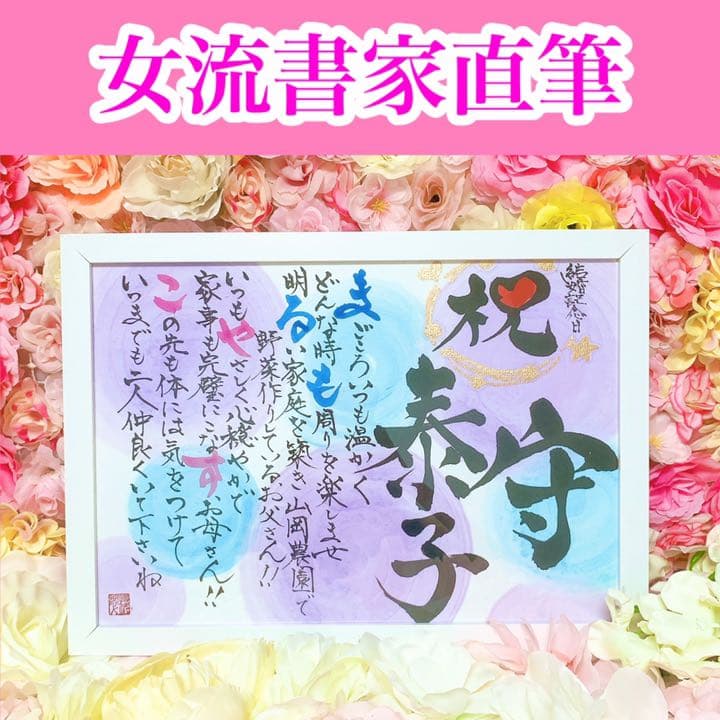 女流書家直筆
結婚記念日
祝
守
泰子
まごころいつも温かく
どんな時も周りを楽しませ
明るい家庭を築き山岡農園で
野菜作りしているお父さん!!
いつもやさしく心穏やかで
家事も完璧にこなすお母さん!!
この先も体には気をつけて
いつまでも二人仲良くいて下さいね